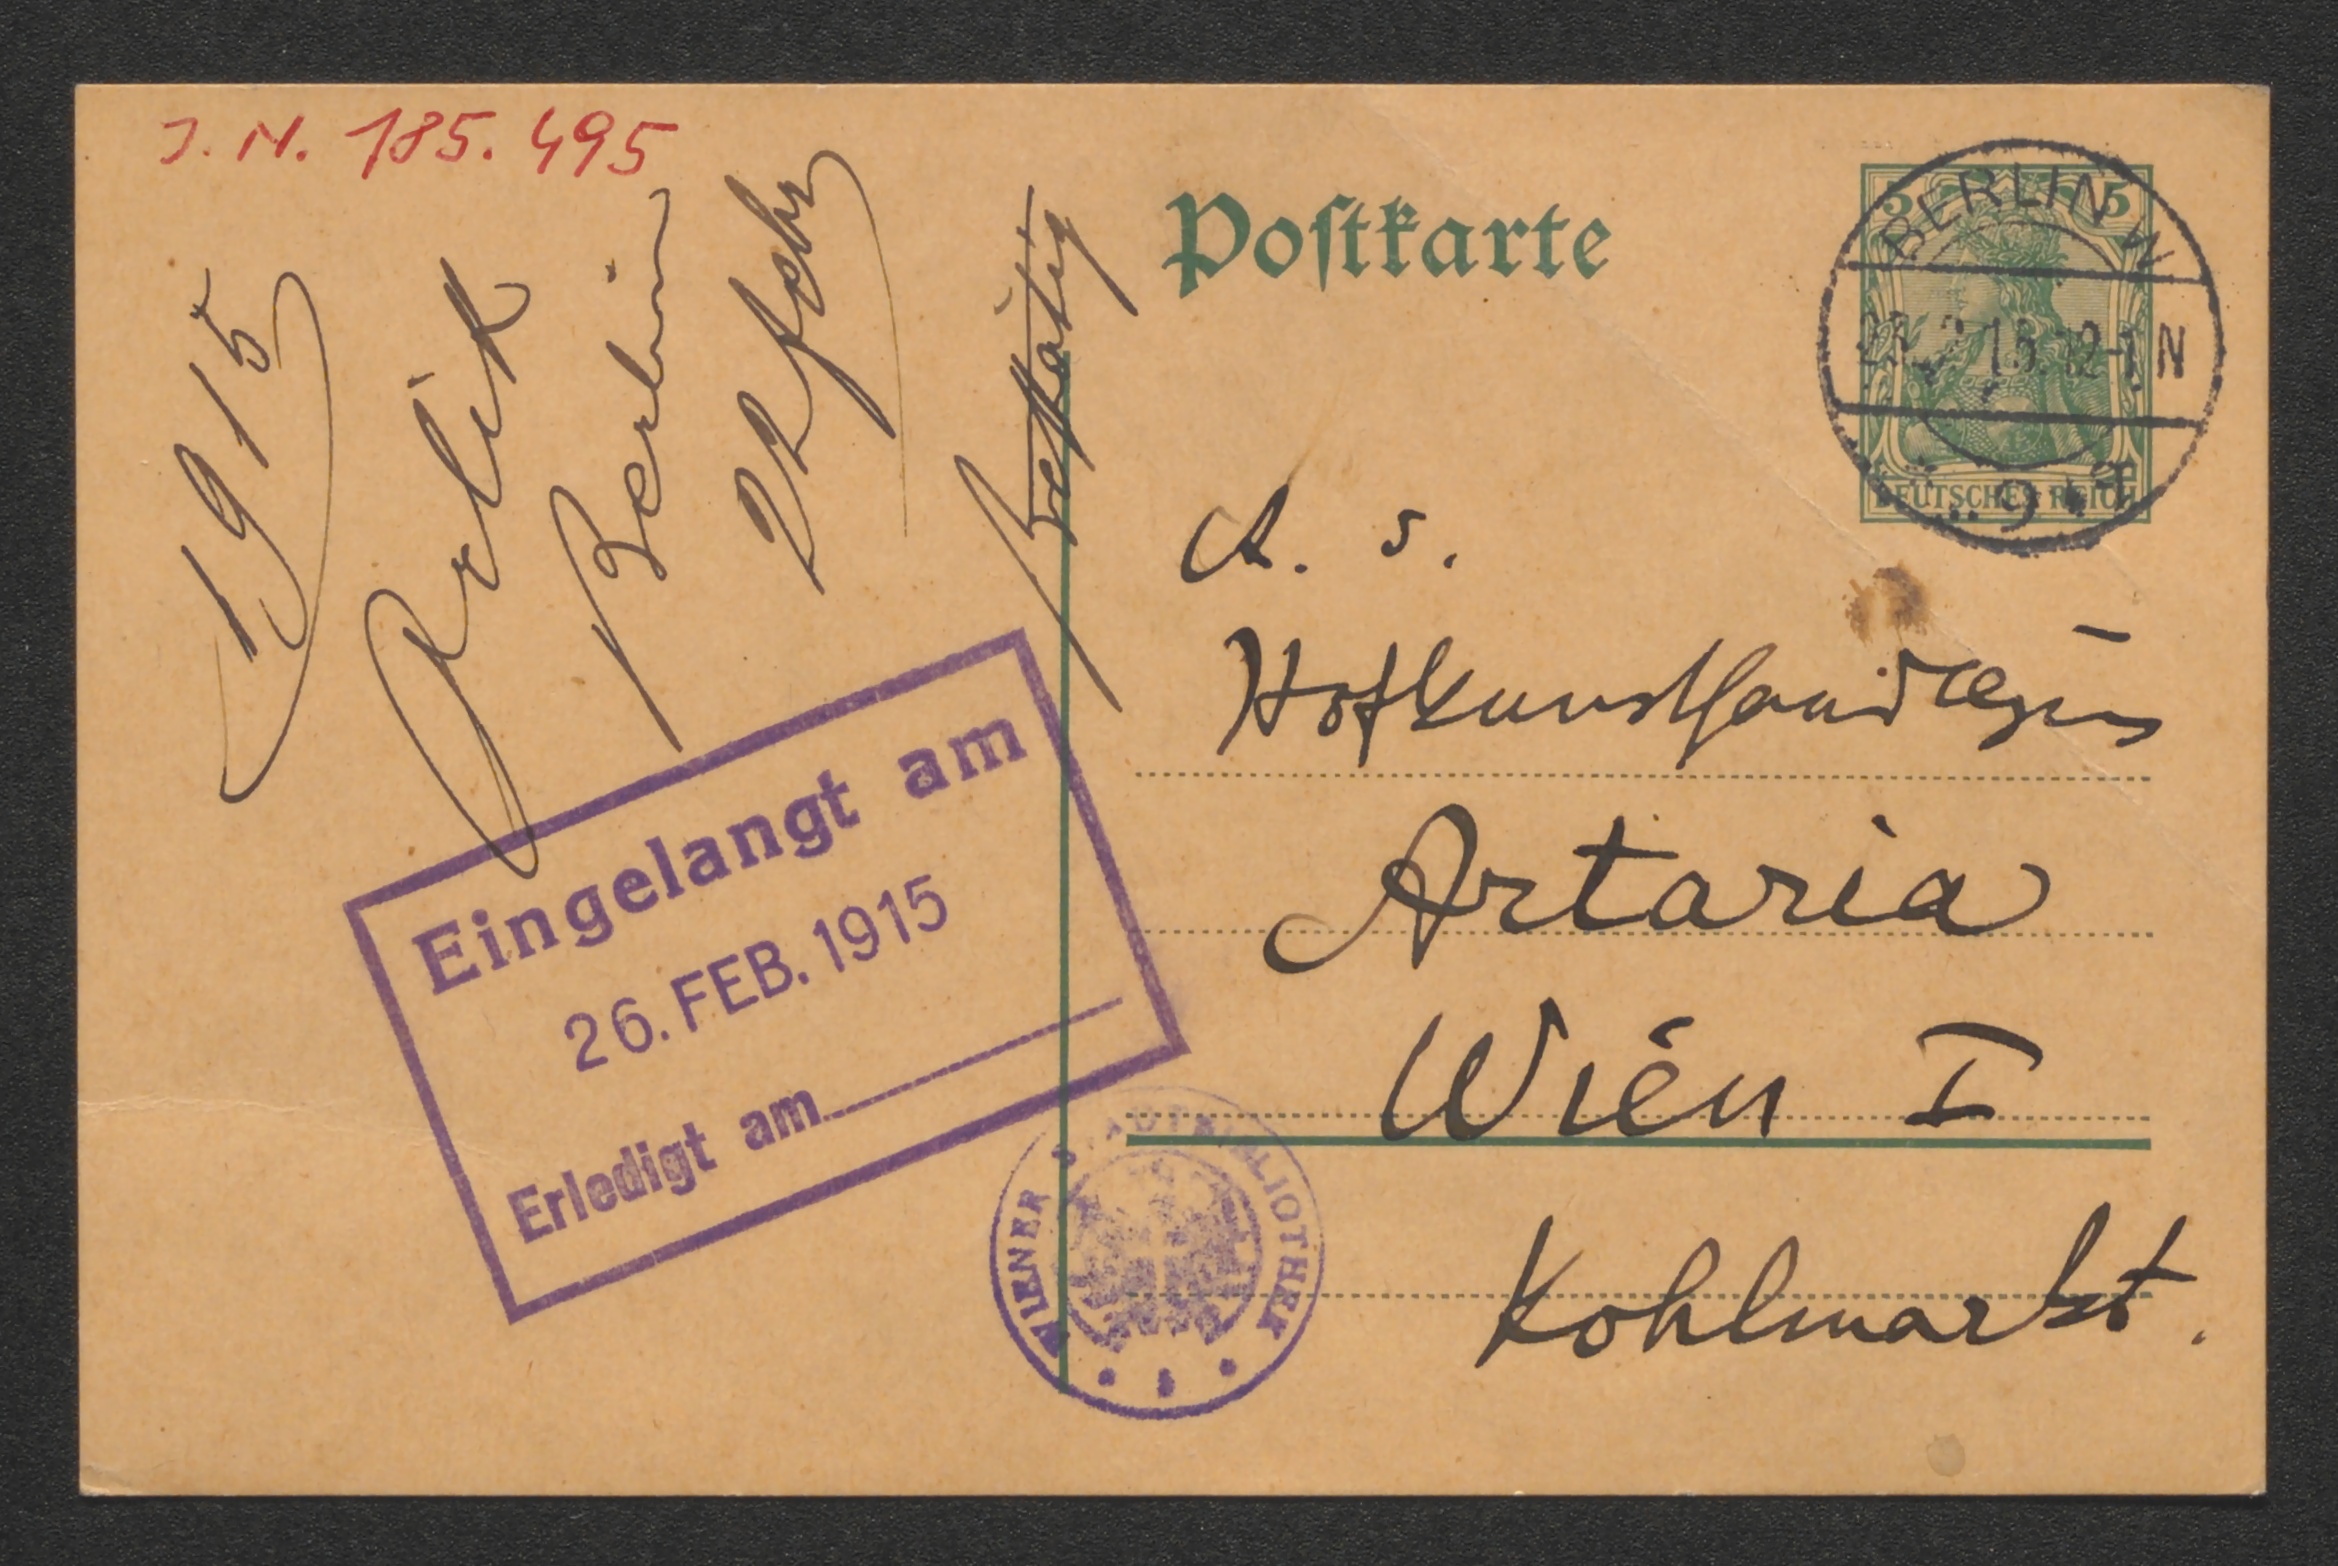 J. N. 185.495
1915
Orlik
Berlin
22 Febr
Postkarte
5 5
BERLIN W
15.12-1 N
9
DEUTSCHES REICH
A. S.
Hofkunsthandlung
Artaria
Wien I
Kohlmarkt.
Eingelangt am
26. FEB. 1915
Erledigt am
WIENER STADTBIBLIOTHEK